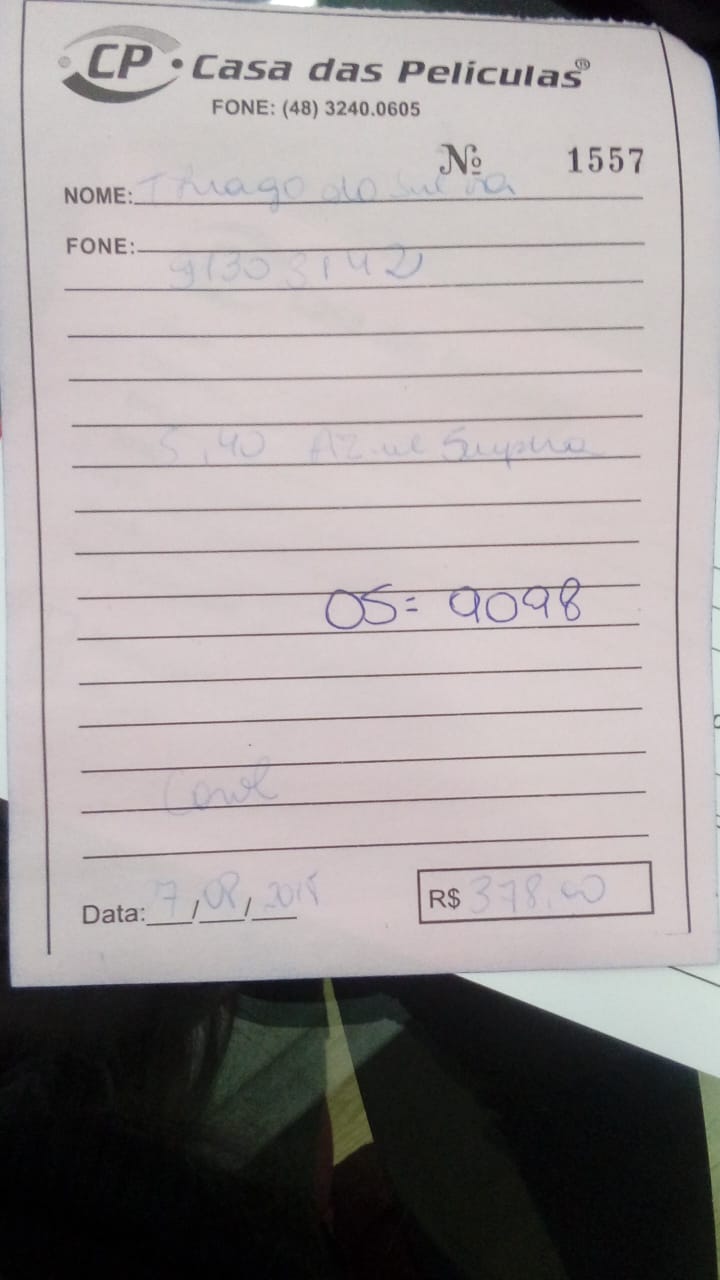 CP • Casa das Películas®
FONE: (48) 3240.0605
Nº 1557
NOME: Thiago da Silva
FONE:
91303142
5,40 Azul Supra
OS= 9098
Data: 7/08/2018
R$ 378,00